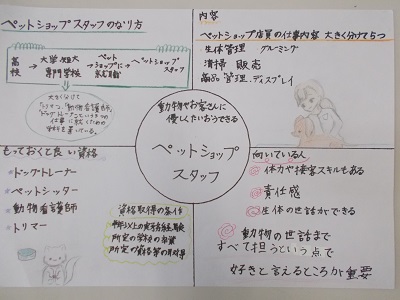 ペットショップスタッフのなり方
高校
大学・短大
専門学校
ペット
ショップに
就職
ペットショップ
スタッフ
大きく分けて
「トリマー」「動物看護師」
「ドッグトレーナー」というような
仕事に就くための
内容
ペットショップ店員の仕事内容 大きく分けて5つ
生体管理 グルーミング
清掃 販売
商品管理・ディスプレイ
動物やお客さんに
優しくたいおうできる
ペットショップ
スタッフ
もっておくと良い資格
ドッグトレーナー
ペットシッター
動物看護師
トリマー
資格取得の条件
所定の学校の卒業
向いている人
体力や接客スキルもある
責任感
生体の世話ができる
動物の世話まで
すべて担うという点で
好きと言えるところが重要